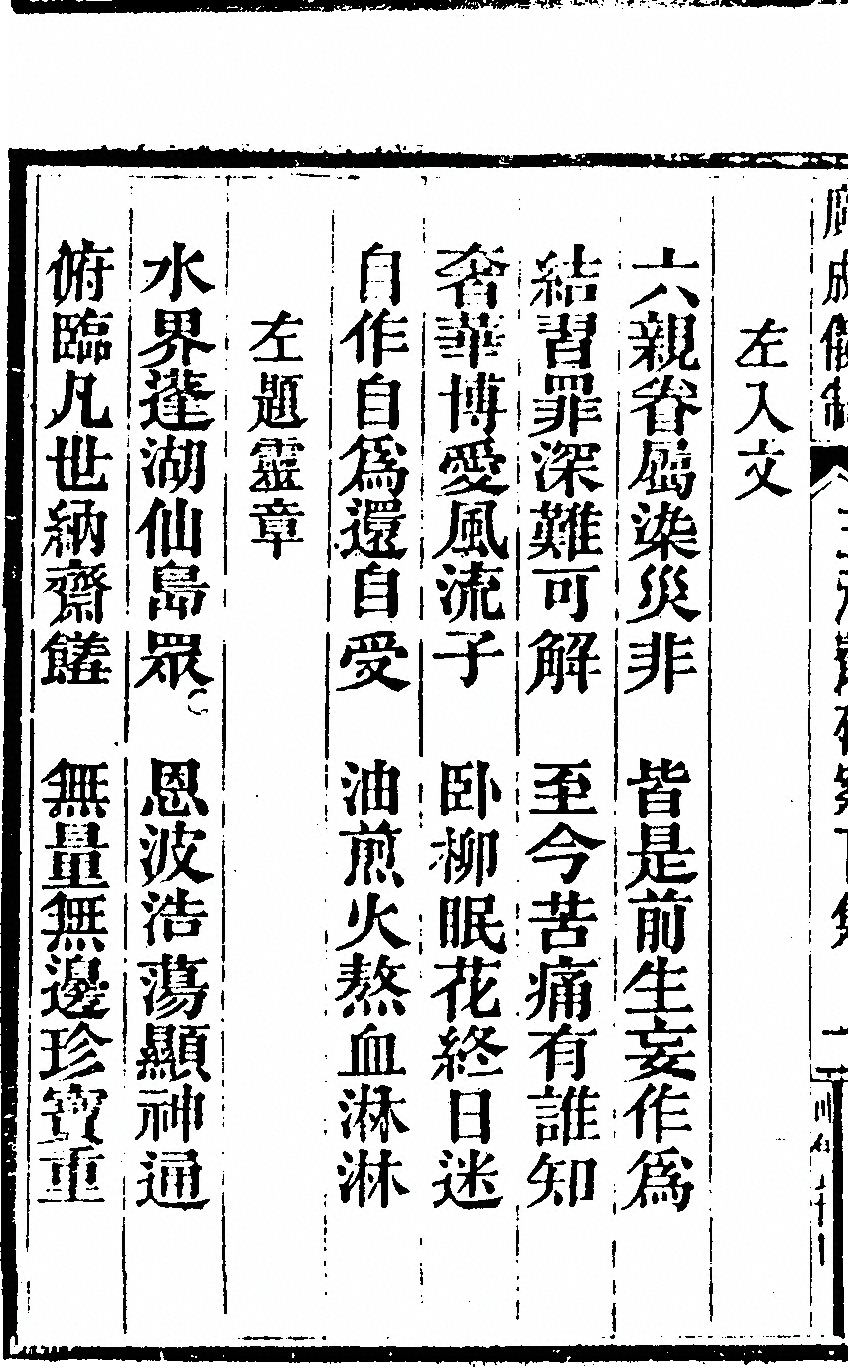 左入文
六親眷屬染災非　皆是前生妄作為
結習罪深難可解　至今苦痛有誰知
奢華博愛風流子　卧柳眠花終日迷
自作自為還自受　油煎火熬血淋淋
左題靈章
水界蓬湖仙島眾　恩波浩蕩顯神通
俯臨凡世納齋饈　無量無邊珍寶重